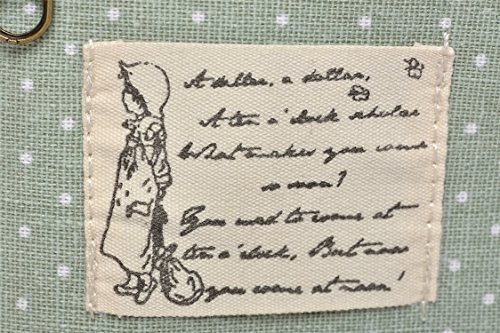 A dillar, a dollar,
A ten o'clock scholar
What makes you come
so soon?
You used to come at
ten o'clock, But now
you come at noon!